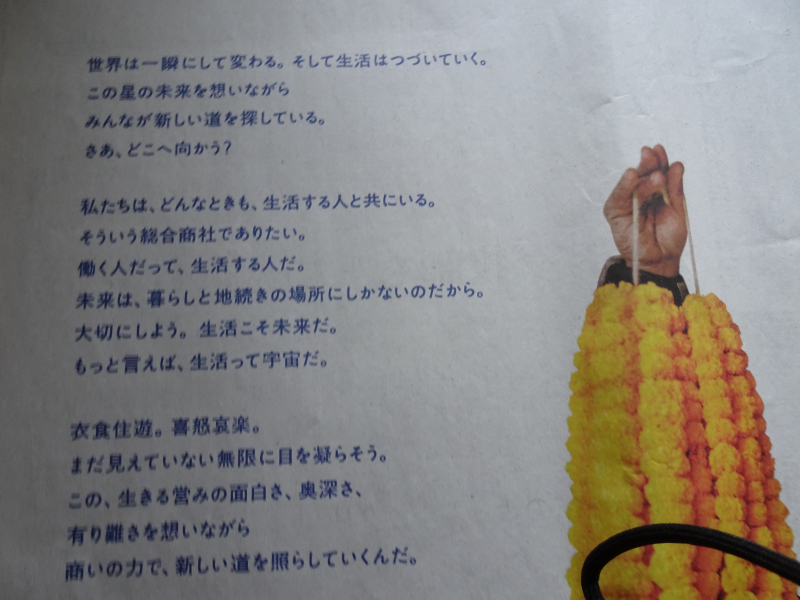 世界は一瞬にして変わる。そして生活はつづいていく。
この星の未来を想いながら
みんなが新しい道を探している。
さあ、どこへ向かう?
私たちは、どんなときも、生活する人と共にいる。
そういう総合商社でありたい。
働く人だって、生活する人だ。
未来は、暮らしと地続きの場所にしかないのだから。
大切にしよう。生活こそ未来だ。
もっと言えば、生活って宇宙だ。
衣食住遊。喜怒哀楽。
まだ見えていない無限に目を凝らそう。
この、生きる営みの面白さ、奥深さ、
有り難さを想いながら
商いの力で、新しい道を照らしていくんだ。